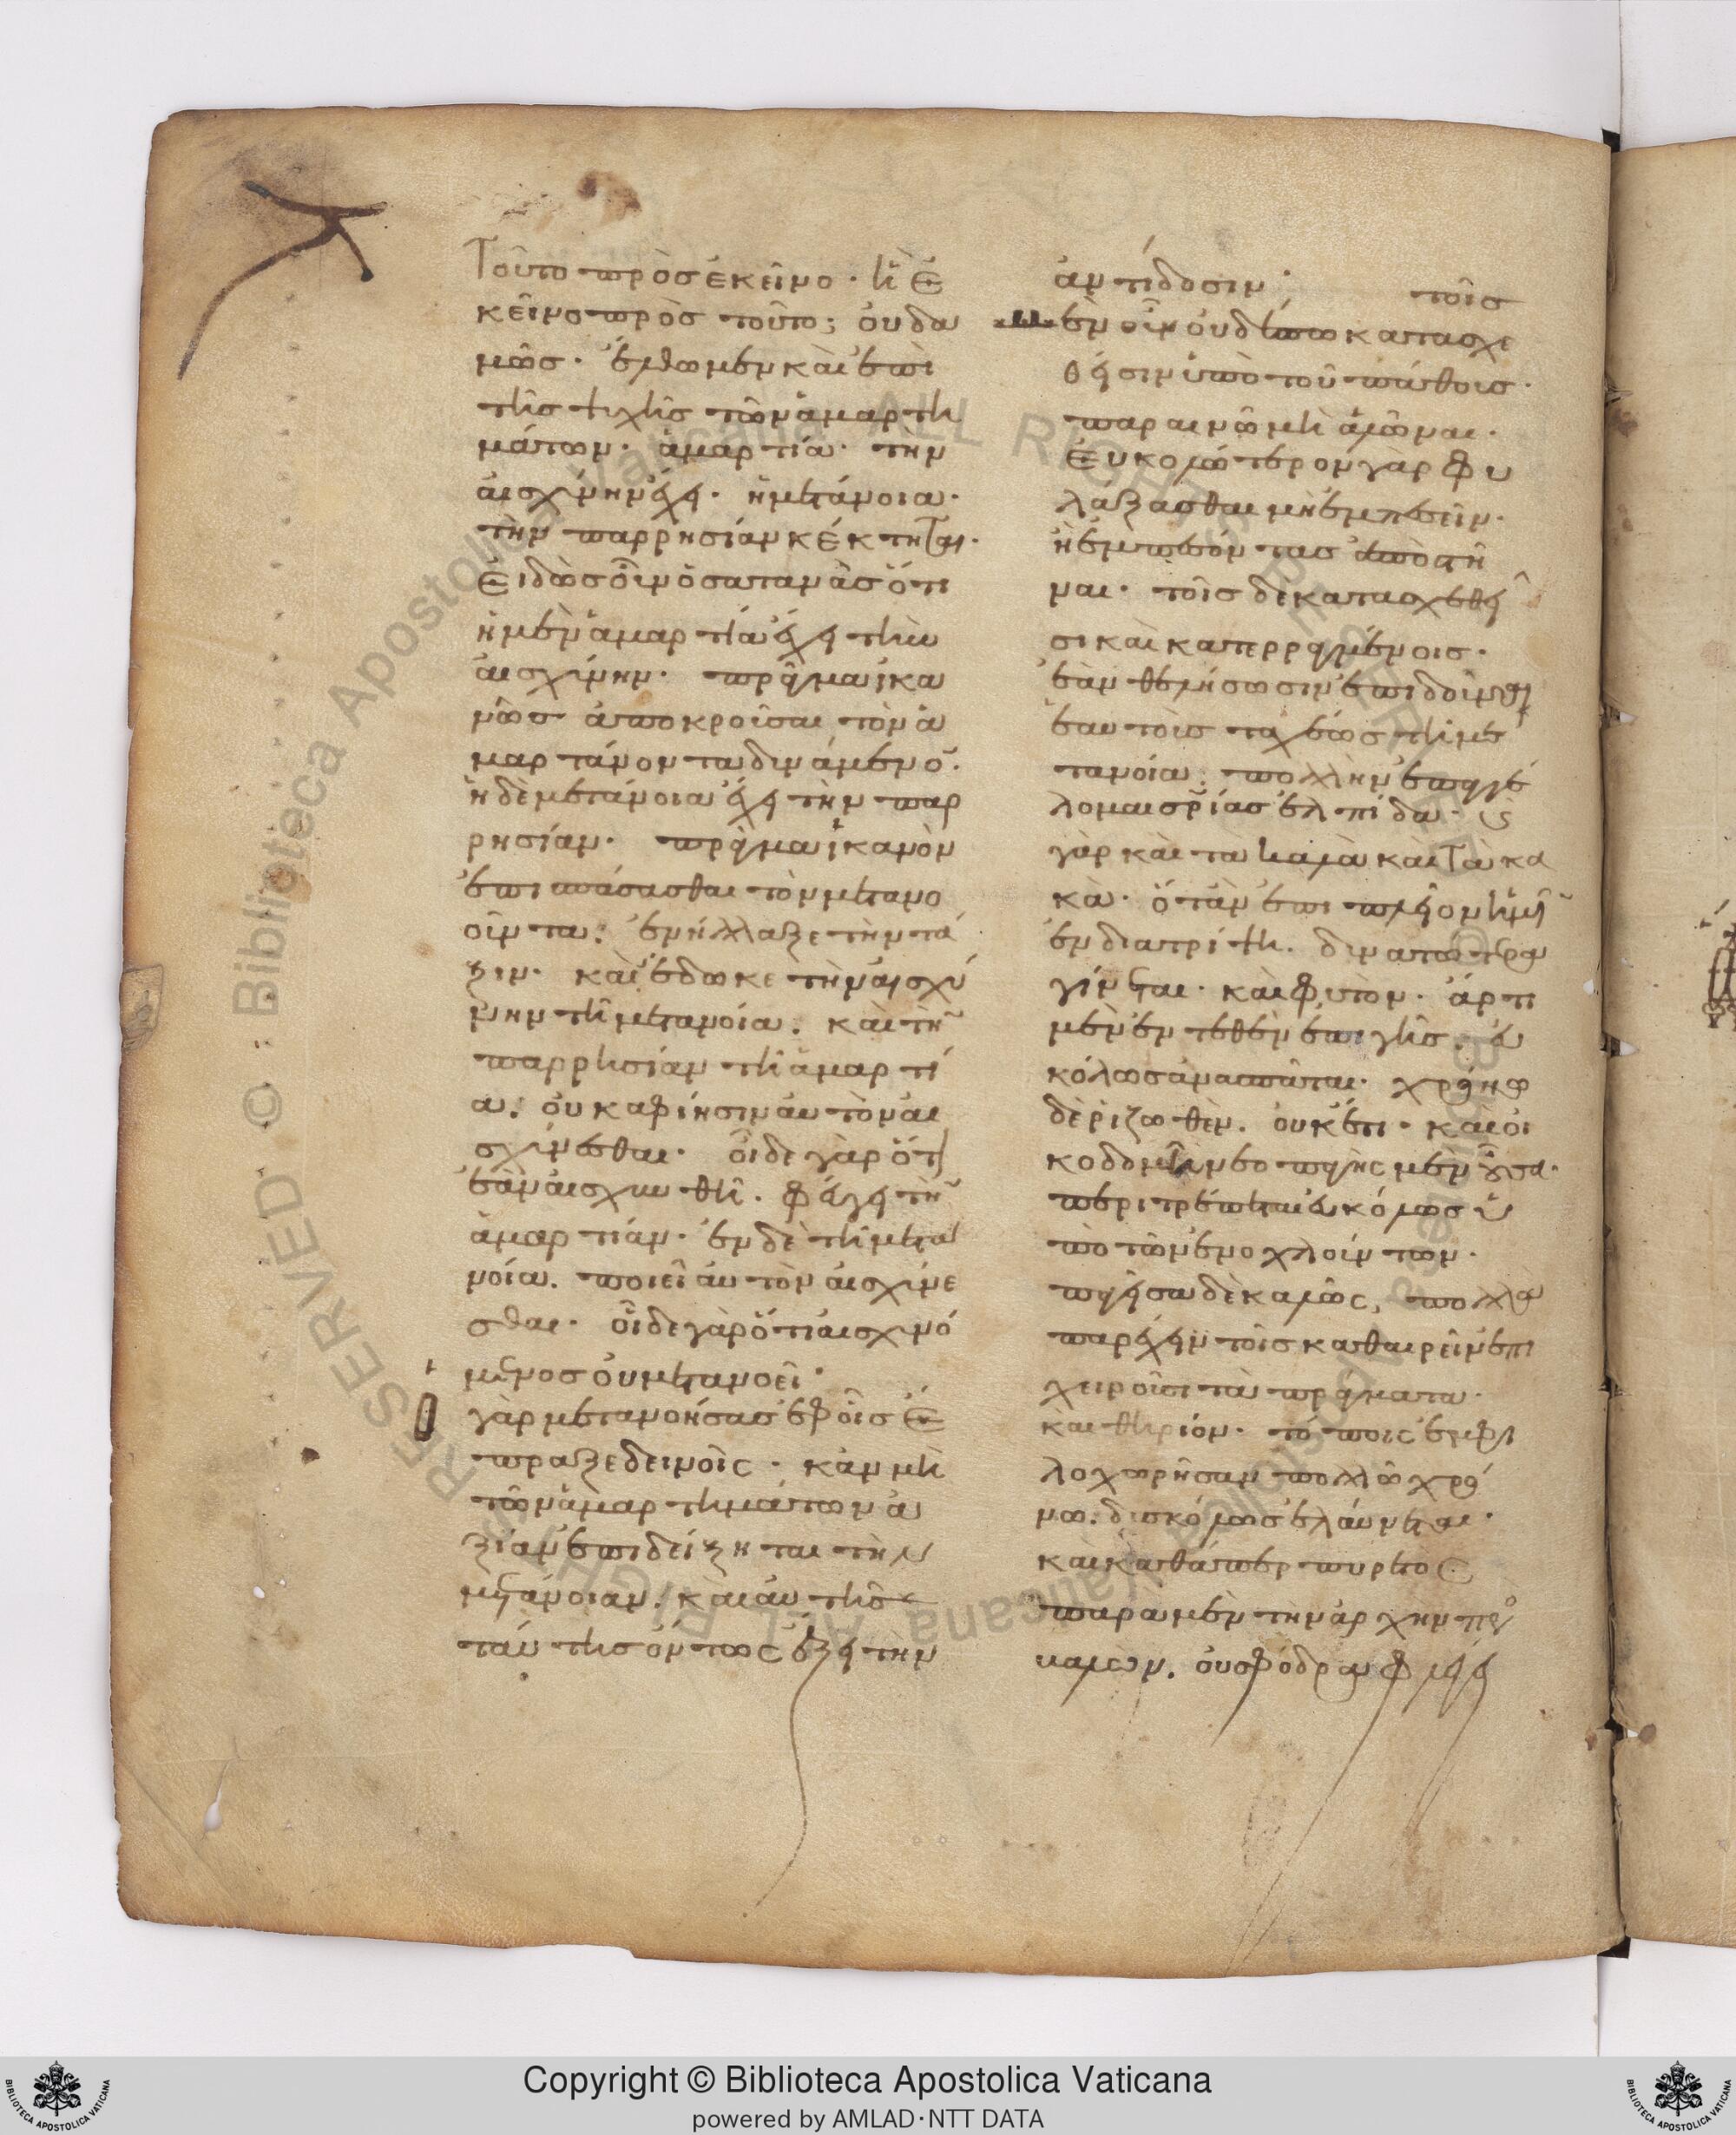 Τοῦτο πρὸς ἐκεῖνο · ἢ ἐ
κεῖνο πρὸς τοῦτο; οὐδα
μῶς · ἔλθωμεν καὶ ἐπὶ
τῆς ψυχῆς τῶν ἁμαρτη
μάτων · ἁμαρτία · τὴν
αἰσχύνην ἔχει · ἡ μετάνοια ·
τὴν παρρησίαν κέκτηται ·
Εἰδὼς οὖν ὁ σατανᾶς ὅτι
ἡ μὲν ἁμαρτία ἔχει τὴν
αἰσχύνην · πρᾶγμα ἱκα
νῶς ἀποκροῦσαι τὸν ἁ
μαρτάνοντα δυνάμενον ·
ἡ δὲ μετάνοια ἔχει τὴν παρ
ρησίαν · πρᾶγμα ἱκανὸν
ἐπισπάσασθαι τὸν μετανο
οῦντα · ἐνήλλαξε τὴν τά
ξιν · καὶ ἔδωκε τὴν αἰσχύ
νην τῆ μετανοία · καὶ τὴν
παρρησίαν τῆ ἁμαρτί
α · οὐκ ἀφίησιν αὐτὸν αἰ
σχύνεσθαι · οἶδε γὰρ ὅτι
ἐὰν αἰσχυνθῆ · φεύγει τὴν
ἁμαρτίαν · ἐν δὲ τῆ μετα
νοία · ποιεῖ αὐτὸν αἰσχύνε
σθαι · οἶδε γὰρ ὅτι αἰσχυνό
μενος οὐ μετανοεῖ ·
Ὁ γὰρ μετανοήσας ἐφ' οἷς ἔ
πραξε δεινοῖς · κἂν μὴ
τῶν ἁμαρτημάτων ἀ
ξίαν ἐπιδείξηται τὴν
μετάνοιαν · καὶ αὐτῆς
ταύτης ὄντως ἕξει τὴν
ἀντίδοσιν · τοῖς
μὲν οὖν οὐδέπω κατασχε
θεῖσιν ὑπὸ τοῦ πάθους ·
παραινῶ μὴ ἁλῶναι ·
Εὐκολώτερον γὰρ φυ
λάξασθαι μὴ ἐμπεσεῖν ·
ἢ ἐμπεσόντας ἀποστῆ
ναι · τοῖς δὲ κατασχεθεῖ
σι καὶ καταρραγμένοις ·
ἐὰν θελήσωσιν ἐπιδοῦναι
ἑαυτοὺς ταχέως τῆ με
τανοία · πολλὴν ἐπαγγέ
λομαι σωτηρίας ἐλπίδα ·
γὰρ καὶ τὰ καλὰ καὶ τὰ κα
κὰ · ὅταν ἐπὶ πλεῖον ἡμῖν
ἐνδιατρίψη · δυνατώτερα
γίνεται · καὶ φυτὸν · ἄρτι
μὲν ἐντεθὲν ἐπὶ γῆς · εὐ
κόλως ἀνασπᾶται · χρόνω
δὲ ῥιζωθὲν · οὐκ ἔτι · καὶ οἰ
κοδομὴ νεοπαγὴς μὲν οὖσα ·
περιτρέπεται εὐκόλως ὑ
πὸ τῶν ἐνοχλούντων ·
παγεῖσα δὲ καλῶς, πολλὰ
παρέχειν τοῖς καθαιρεῖν ἐπι
χειροῦσι τὰ πράγματα ·
καὶ θηρίον · τόποις ἐμφι
λοχωρῆσαν πολλῶ χρό
νω · δυσκόλως ἐλαύνεται ·
καὶ καθάπερ πυρετὸς
παρὰ μὲν τὴν ἀρχὴν περι
καίων · οὐ σφόδρα φλέγει